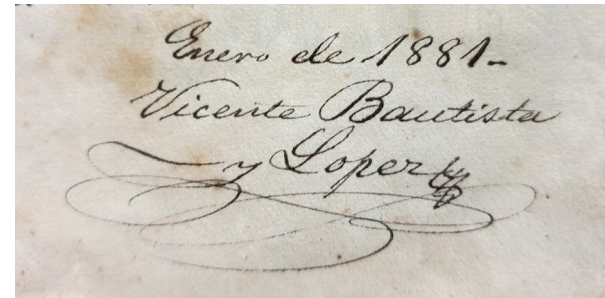 Enero de 1881-
Vicente Bautista
y Lopez